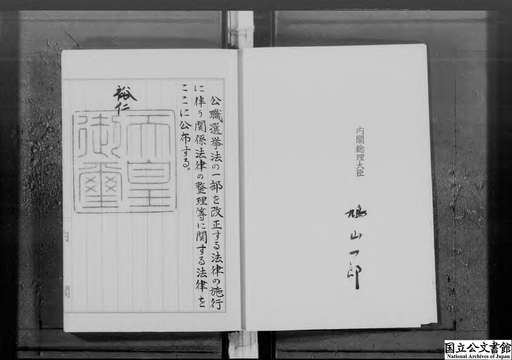 公職選挙法の一部を改正する法律の施行
に伴う関係法律の整理等に関する法律を
ここに公布する。
裕仁
天皇
御璽
内閣総理大臣
鳩山一郎
国立公文書館
National Archives of Japan